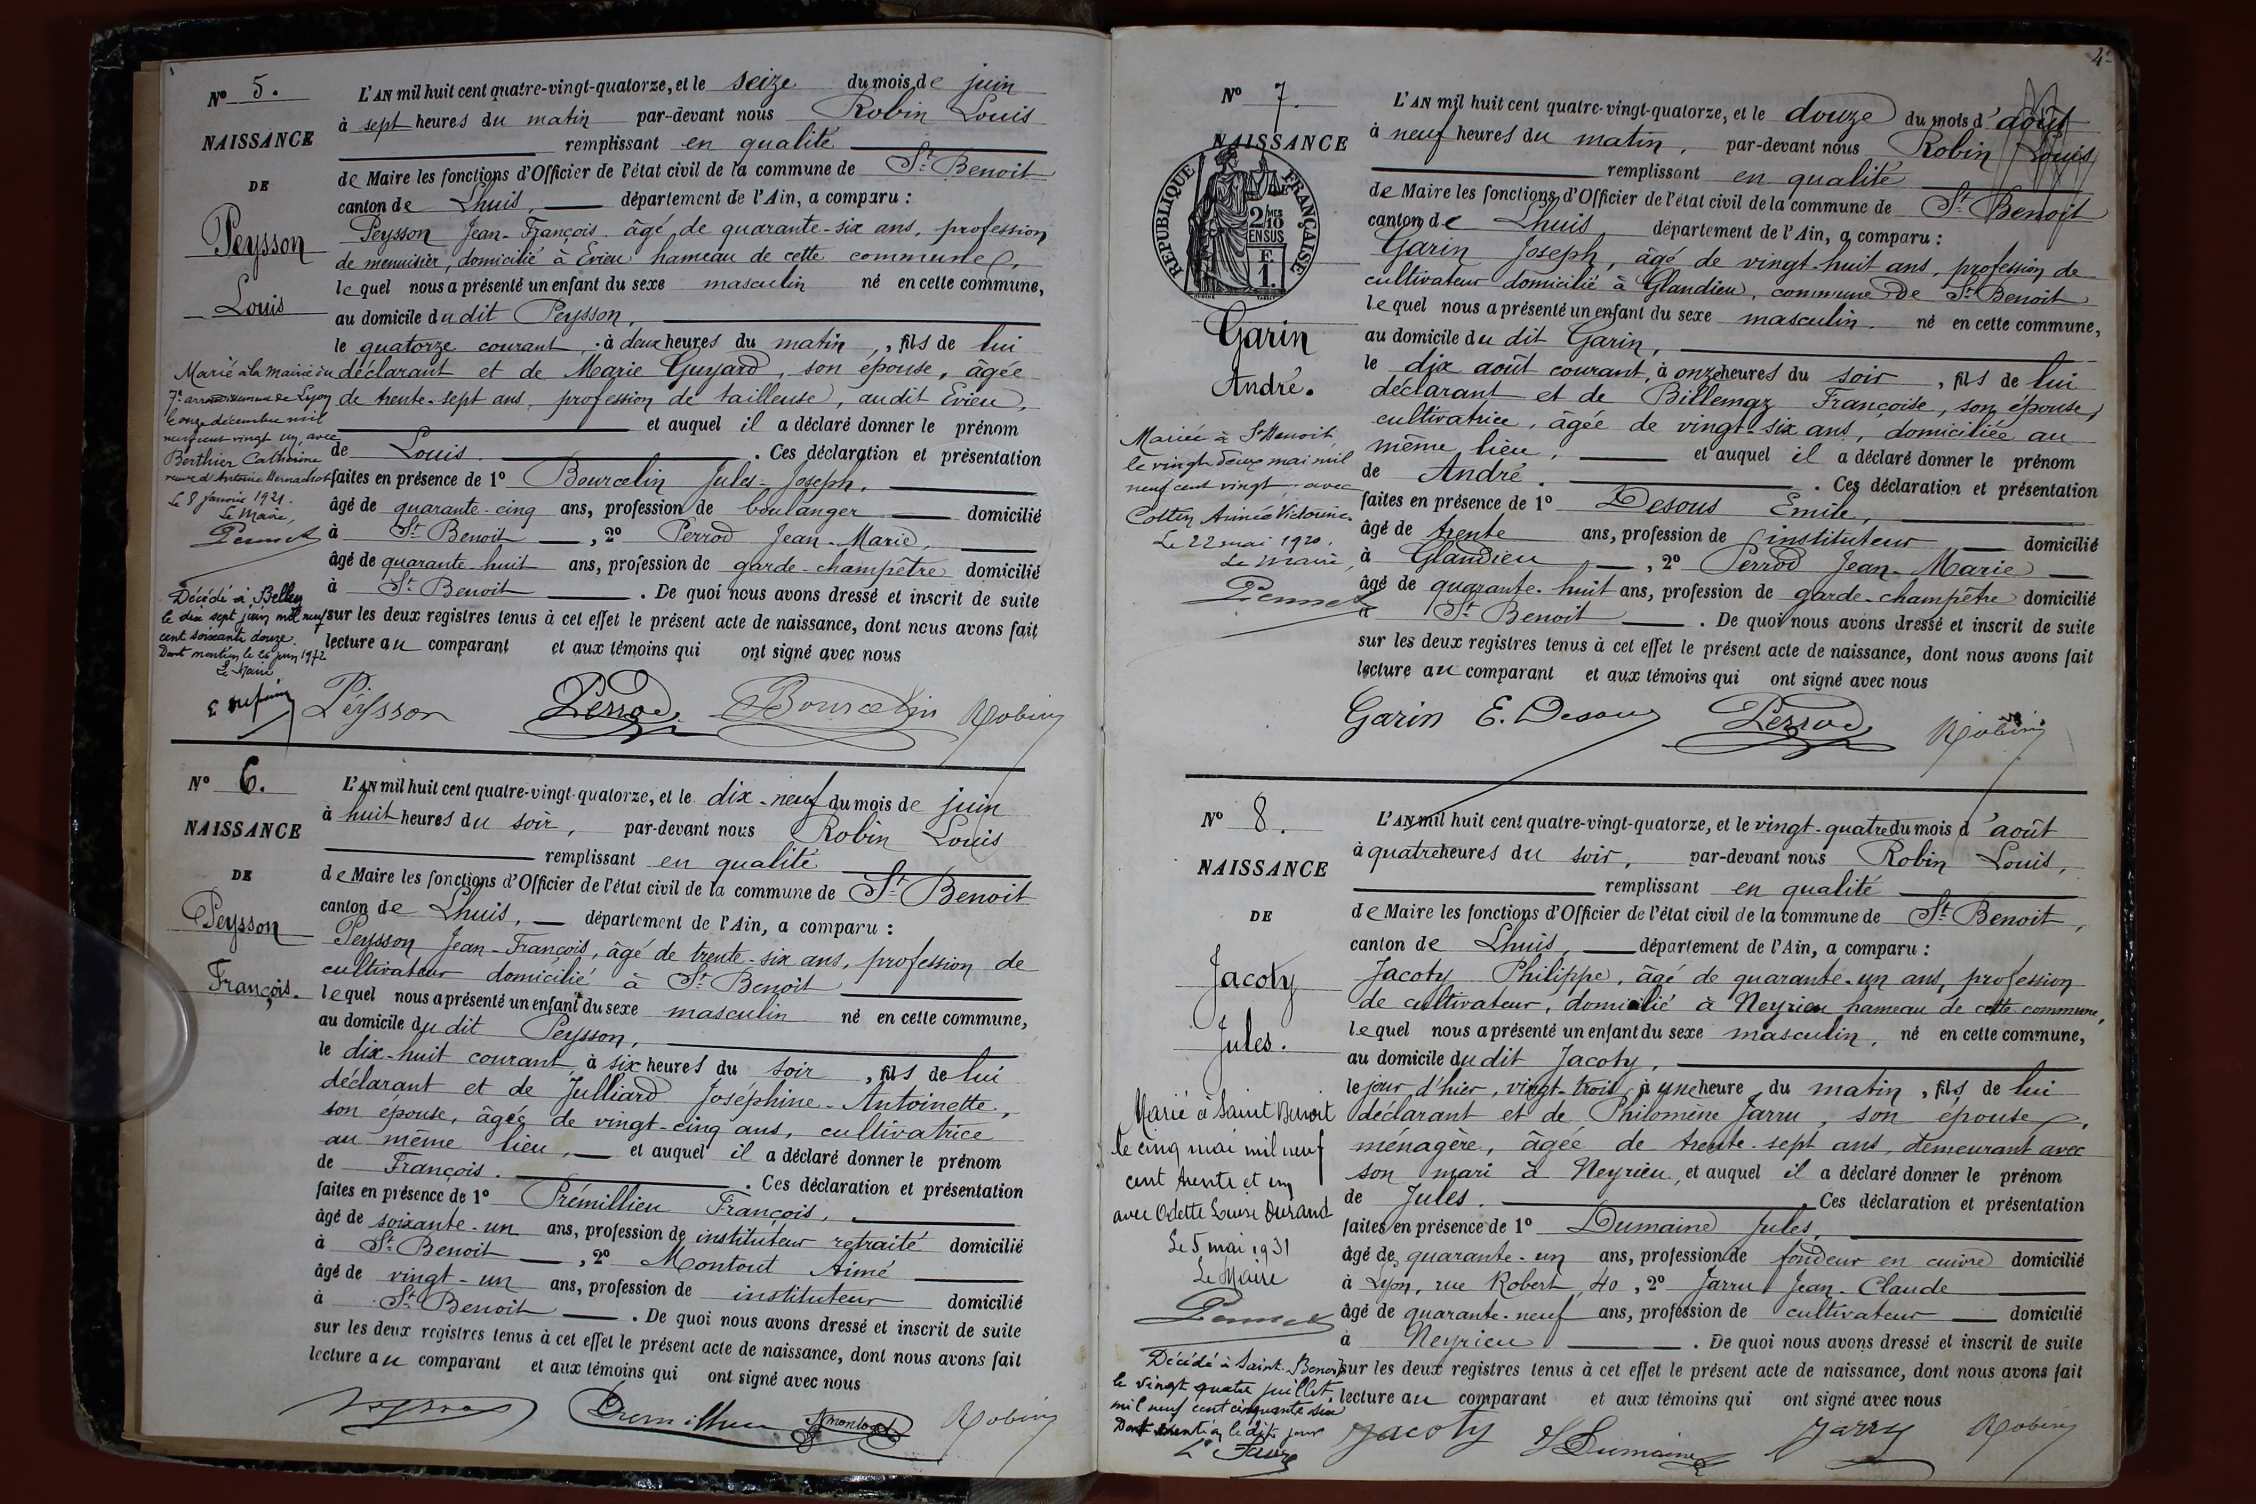 N° 5.
NAISSANCE
DE
Peysson
Louis
L'AN mil huit cent quatre-vingt-quatorze, et le seize du mois de juin
à sept heures du matin par-devant nous Robin Louis
remplissant en qualité
de Maire les fonctions d'Officier de l'état civil de la commune de St Benoit
canton de Lhuis, département de l'Ain, a comparu :
Peysson Jean-François âgé de quarante-six ans, profession
de menuisier, domicilié à Evieu hameau de cette commune,
lequel nous a présenté un enfant du sexe masculin né en cette commune,
au domicile du dit Peysson,
le quatorze courant, à deux heures du matin, fils de lui
déclarant et de Marie Guyard, son épouse, âgée
de trente-sept ans, profession de tailleuse, audit Evieu,
et auquel il a déclaré donner le prénom
de Louis. Ces déclaration et présentation
faites en présence de 1° Bourcelin Jules-Joseph,
âgé de quarante-cinq ans, profession de boulanger domicilié
à St Benoit, 2° Perrod Jean-Marie,
âgé de quarante-huit ans, profession de garde-champêtre domicilié
à St Benoit. De quoi nous avons dressé et inscrit de suite
sur les deux registres tenus à cet effet le présent acte de naissance, dont nous avons fait
lecture au comparant et aux témoins qui ont signé avec nous
Marié à la mairie du
7e arrondissement de Lyon
le onze décembre mil
neuf cent vingt un, avec
Berthier Catherine
veuve d'Antoine
Le 8 janvier 1921.
Le Maire,
Décédé à Belley
le dix sept juin mil neuf
cent soixante douze.
Dont mention le 26 juin 1972
Le Maire
Peysson Perrod Bourcelin Robin
N° 6.
NAISSANCE
DE
Peysson
François.
L'AN mil huit cent quatre-vingt-quatorze, et le dix-neuf du mois de juin
à huit heures du soir, par-devant nous Robin Louis
remplissant en qualité
de Maire les fonctions d'Officier de l'état civil de la commune de St Benoit
canton de Lhuis, département de l'Ain, a comparu :
Peysson Jean-François, âgé de trente-six ans, profession de
cultivateur domicilié à St Benoit
lequel nous a présenté un enfant du sexe masculin né en cette commune,
au domicile du dit Peysson,
le dix-huit courant, à six heures du soir, fils de lui
déclarant et de Julliard Joséphine-Antoinette,
son épouse, âgée de vingt-cinq ans, cultivatrice
au même lieu, et auquel il a déclaré donner le prénom
de François. Ces déclaration et présentation
faites en présence de 1° Prémillieu François,
âgé de soixante-un ans, profession de instituteur retraité domicilié
à St Benoit, 2° Montout Aimé
âgé de vingt-un ans, profession de instituteur domicilié
à St Benoit. De quoi nous avons dressé et inscrit de suite
sur les deux registres tenus à cet effet le présent acte de naissance, dont nous avons fait
lecture au comparant et aux témoins qui ont signé avec nous
Peysson Premillieu Montout Robin
4
N° 7.
NAISSANCE
RÉPUBLIQUE FRANÇAISE
2/10 MES
EN SUS
F.
1.
Garin
André.
L'AN mil huit cent quatre-vingt-quatorze, et le douze du mois d'août
à neuf heures du matin, par-devant nous Robin Louis
remplissant en qualité
de Maire les fonctions d'Officier de l'état civil de la commune de St Benoit
canton de Lhuis, département de l'Ain, a comparu :
Garin Joseph, âgé de vingt-huit ans, profession de
cultivateur domicilié à Glandieu, commune de St Benoit
lequel nous a présenté un enfant du sexe masculin. né en cette commune,
au domicile du dit Garin,
le dix août courant, à onze heures du soir, fils de lui
déclarant et de Billemaz Françoise, son épouse,
cultivatrice, âgée de vingt-six ans, domiciliée au
même lieu, et auquel il a déclaré donner le prénom
de André. Ces déclaration et présentation
faites en présence de 1° Desous Emile,
âgé de trente ans, profession de instituteur domicilié
à Glandieu, 2° Perrod Jean-Marie
âgé de quarante-huit ans, profession de garde-champêtre domicilié
à St Benoit. De quoi nous avons dressé et inscrit de suite
sur les deux registres tenus à cet effet le présent acte de naissance, dont nous avons fait
lecture au comparant et aux témoins qui ont signé avec nous
Mariée à St Benoit,
le vingt deux mai mil
neuf cent vingt, avec
Cotten Aimée Victorine.
Le 22 mai 1920.
Le Maire,
Garin E. Desous Perrod Robin
N° 8.
NAISSANCE
DE
Jacoty
Jules.
L'AN mil huit cent quatre-vingt-quatorze, et le vingt-quatre du mois d'août
à quatre heures du soir, par-devant nous Robin Louis,
remplissant en qualité
de Maire les fonctions d'Officier de l'état civil de la commune de St Benoit,
canton de Lhuis, département de l'Ain, a comparu :
Jacoty Philippe, âgé de quarante-un ans, profession
de cultivateur, domicilié à Neyrieu hameau de cette commune,
lequel nous a présenté un enfant du sexe masculin, né en cette commune,
au domicile du dit Jacoty,
le jour d'hier, vingt-trois, à une heure du matin, fils de lui
déclarant et de Philomène Jarru, son épouse,
ménagère, âgée de trente-sept ans, demeurant avec
son mari à Neyrieu, et auquel il a déclaré donner le prénom
de Jules. Ces déclaration et présentation
faites en présence de 1° Dumaine Jules,
âgé de quarante-un ans, profession de fondeur en cuivre domicilié
à Lyon, rue Robert, 40, 2° Jarru Jean-Claude
âgé de quarante-neuf ans, profession de cultivateur domicilié
à Neyrieu. De quoi nous avons dressé et inscrit de suite
sur les deux registres tenus à cet effet le présent acte de naissance, dont nous avons fait
lecture au comparant et aux témoins qui ont signé avec nous
Marié à Saint Benoit
le cinq mai mil neuf
cent trente et un
avec Odette Louise Durand
Le 5 mai 1931
Le Maire
Décédé à Saint-Benoit
le vingt quatre juillet
mil neuf cent cinquante six
Dont mention le dit jour
Le Maire
Jacoty J Dumaine Jarru Robin